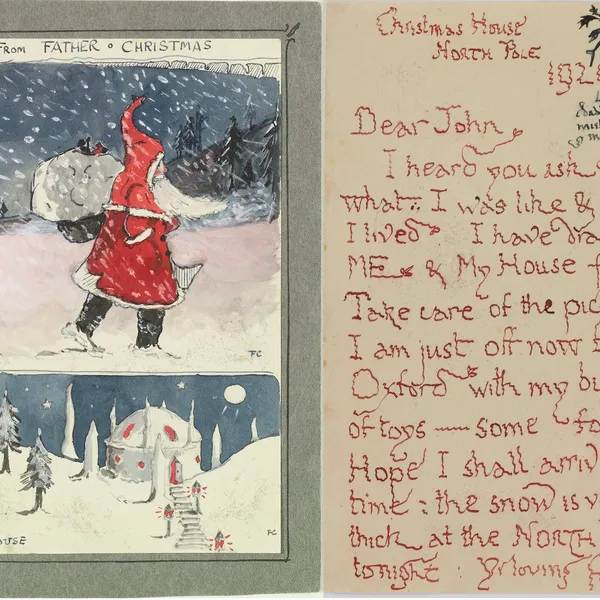 FROM FATHER ∘ CHRISTMAS
FC
FC
Christmas House
NORTH POLE
Dear John
I heard you ask
what I was like &
I lived I have
ME & My House
Take care of the
I am just off now
Oxford with my
of toys — some
Hope I shall
time : the snow is
thick at the NORTH
tonight : Yr loving